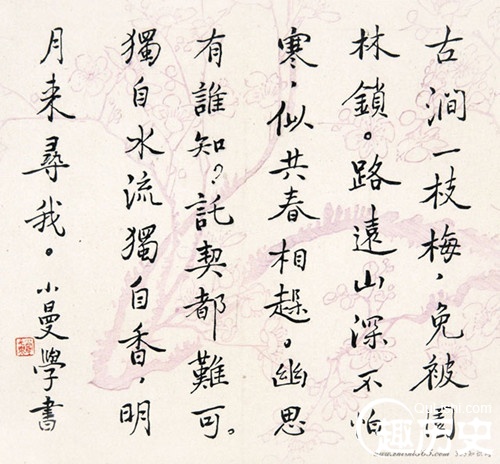 古澗一枝梅，免被園
林鎖。路遠山深不怕
寒，似共春相趓。幽思
有誰知？託契都難可。
獨自水流獨自香，明
月來尋我。小曼學書
QuLiShi.com
趣历史